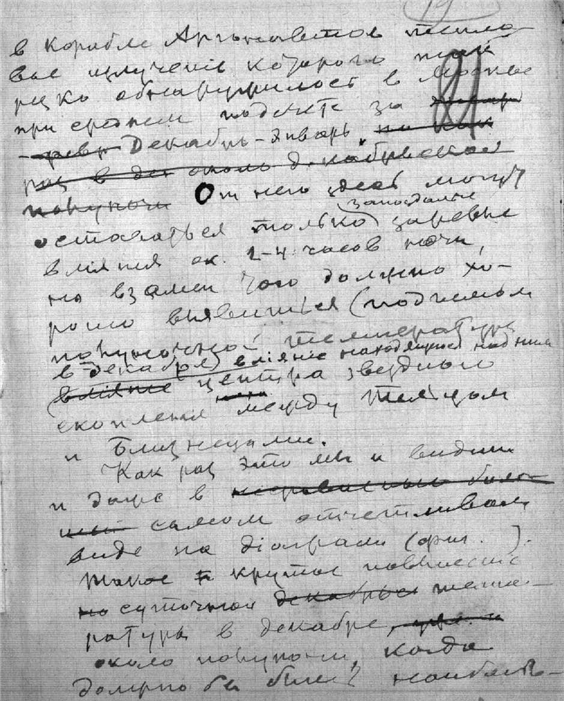 19
в Корабле Аргонавтов тепло-
вое излучение которого так
резко обнаружилось в Москве
при среднем подсчете за
Декабрь-Январь на как
раз в де около декабрьской
полуночи От него здесь могут
остаться только западные заревые
влияния ок. 2-4 часов ночи,
но взамен того должно хо-
рошо выявиться (подъемом
полуночной температуры
в декабре) влияние находящегося над ними
(влияние центра звездного
скопления между Тельцом
и Близнецами.
Как раз это мы и видим
и даже в
самом отчетливом
виде на діаграмм (фиг. ).
Такое крутое повышение
но суточной декабрьс темпе-
ратуры в декабре,
около полуночи, когда
должно бы быть наиболь-